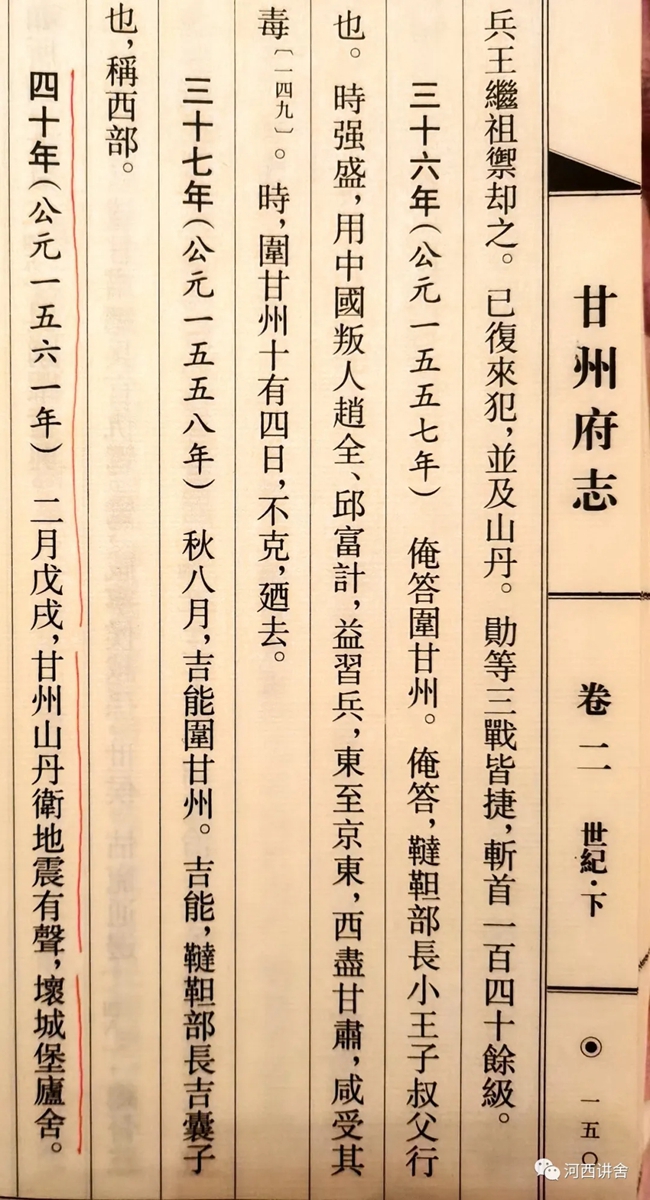 甘州府志
卷二 世紀·下
一五〇
兵王繼祖禦却之。已復來犯，並及山丹。勛等三戰皆捷，斬首一百四十餘級。
三十六年（公元一五五七年） 俺答圍甘州。俺答，韃靼部長小王子叔父行
也。時强盛，用中國叛人趙全、邱富計，益習兵，東至京東，西盡甘肅，咸受其
毒〔一四九〕。時，圍甘州十有四日，不克，廼去。
三十七年（公元一五五八年） 秋八月，吉能圍甘州。吉能，韃靼部長吉囊子
也，稱西部。
四十年（公元一五六一年） 二月戊戌，甘州山丹衛地震有聲，壞城堡廬舍。
河西讲舍